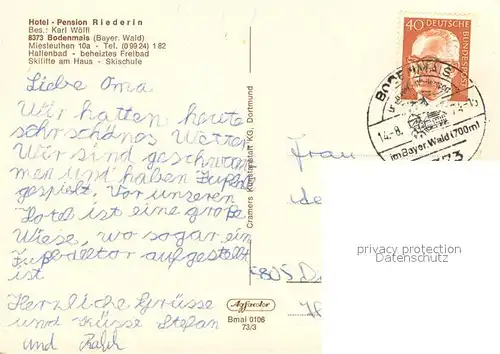 Hotel - Pension Riederin
Bes.: Karl Wölfl
8373 Bodenmais (Bayer. Wald)
Miesleuthen 10a - Tel. (0 99 24) 1 82
Hallenbad - beheiztes Freibad
Skilifte am Haus - Skischule
Liebe Oma
Wir hatten heute
sehr schönes Wetter
Wir sind geschwom
men und haben Fußball
gespielt. Vor unseren
Hotel ist eine große
Wiese, wo sogar ein
Fußballtor aufgestellt
ist
Herzliche Grüsse
und Küsse Stefan
und Ralph
Cramers Kunstanstalt KG, Dortmund
Agfacolor
Bmai 0106
73/3
40
DEUTSCHE
BUNDESPOST
BODENMAIS
14.-8.
im Bayer. Wald (700m)
8373
Frau
805
privacy protection
Datenschutz